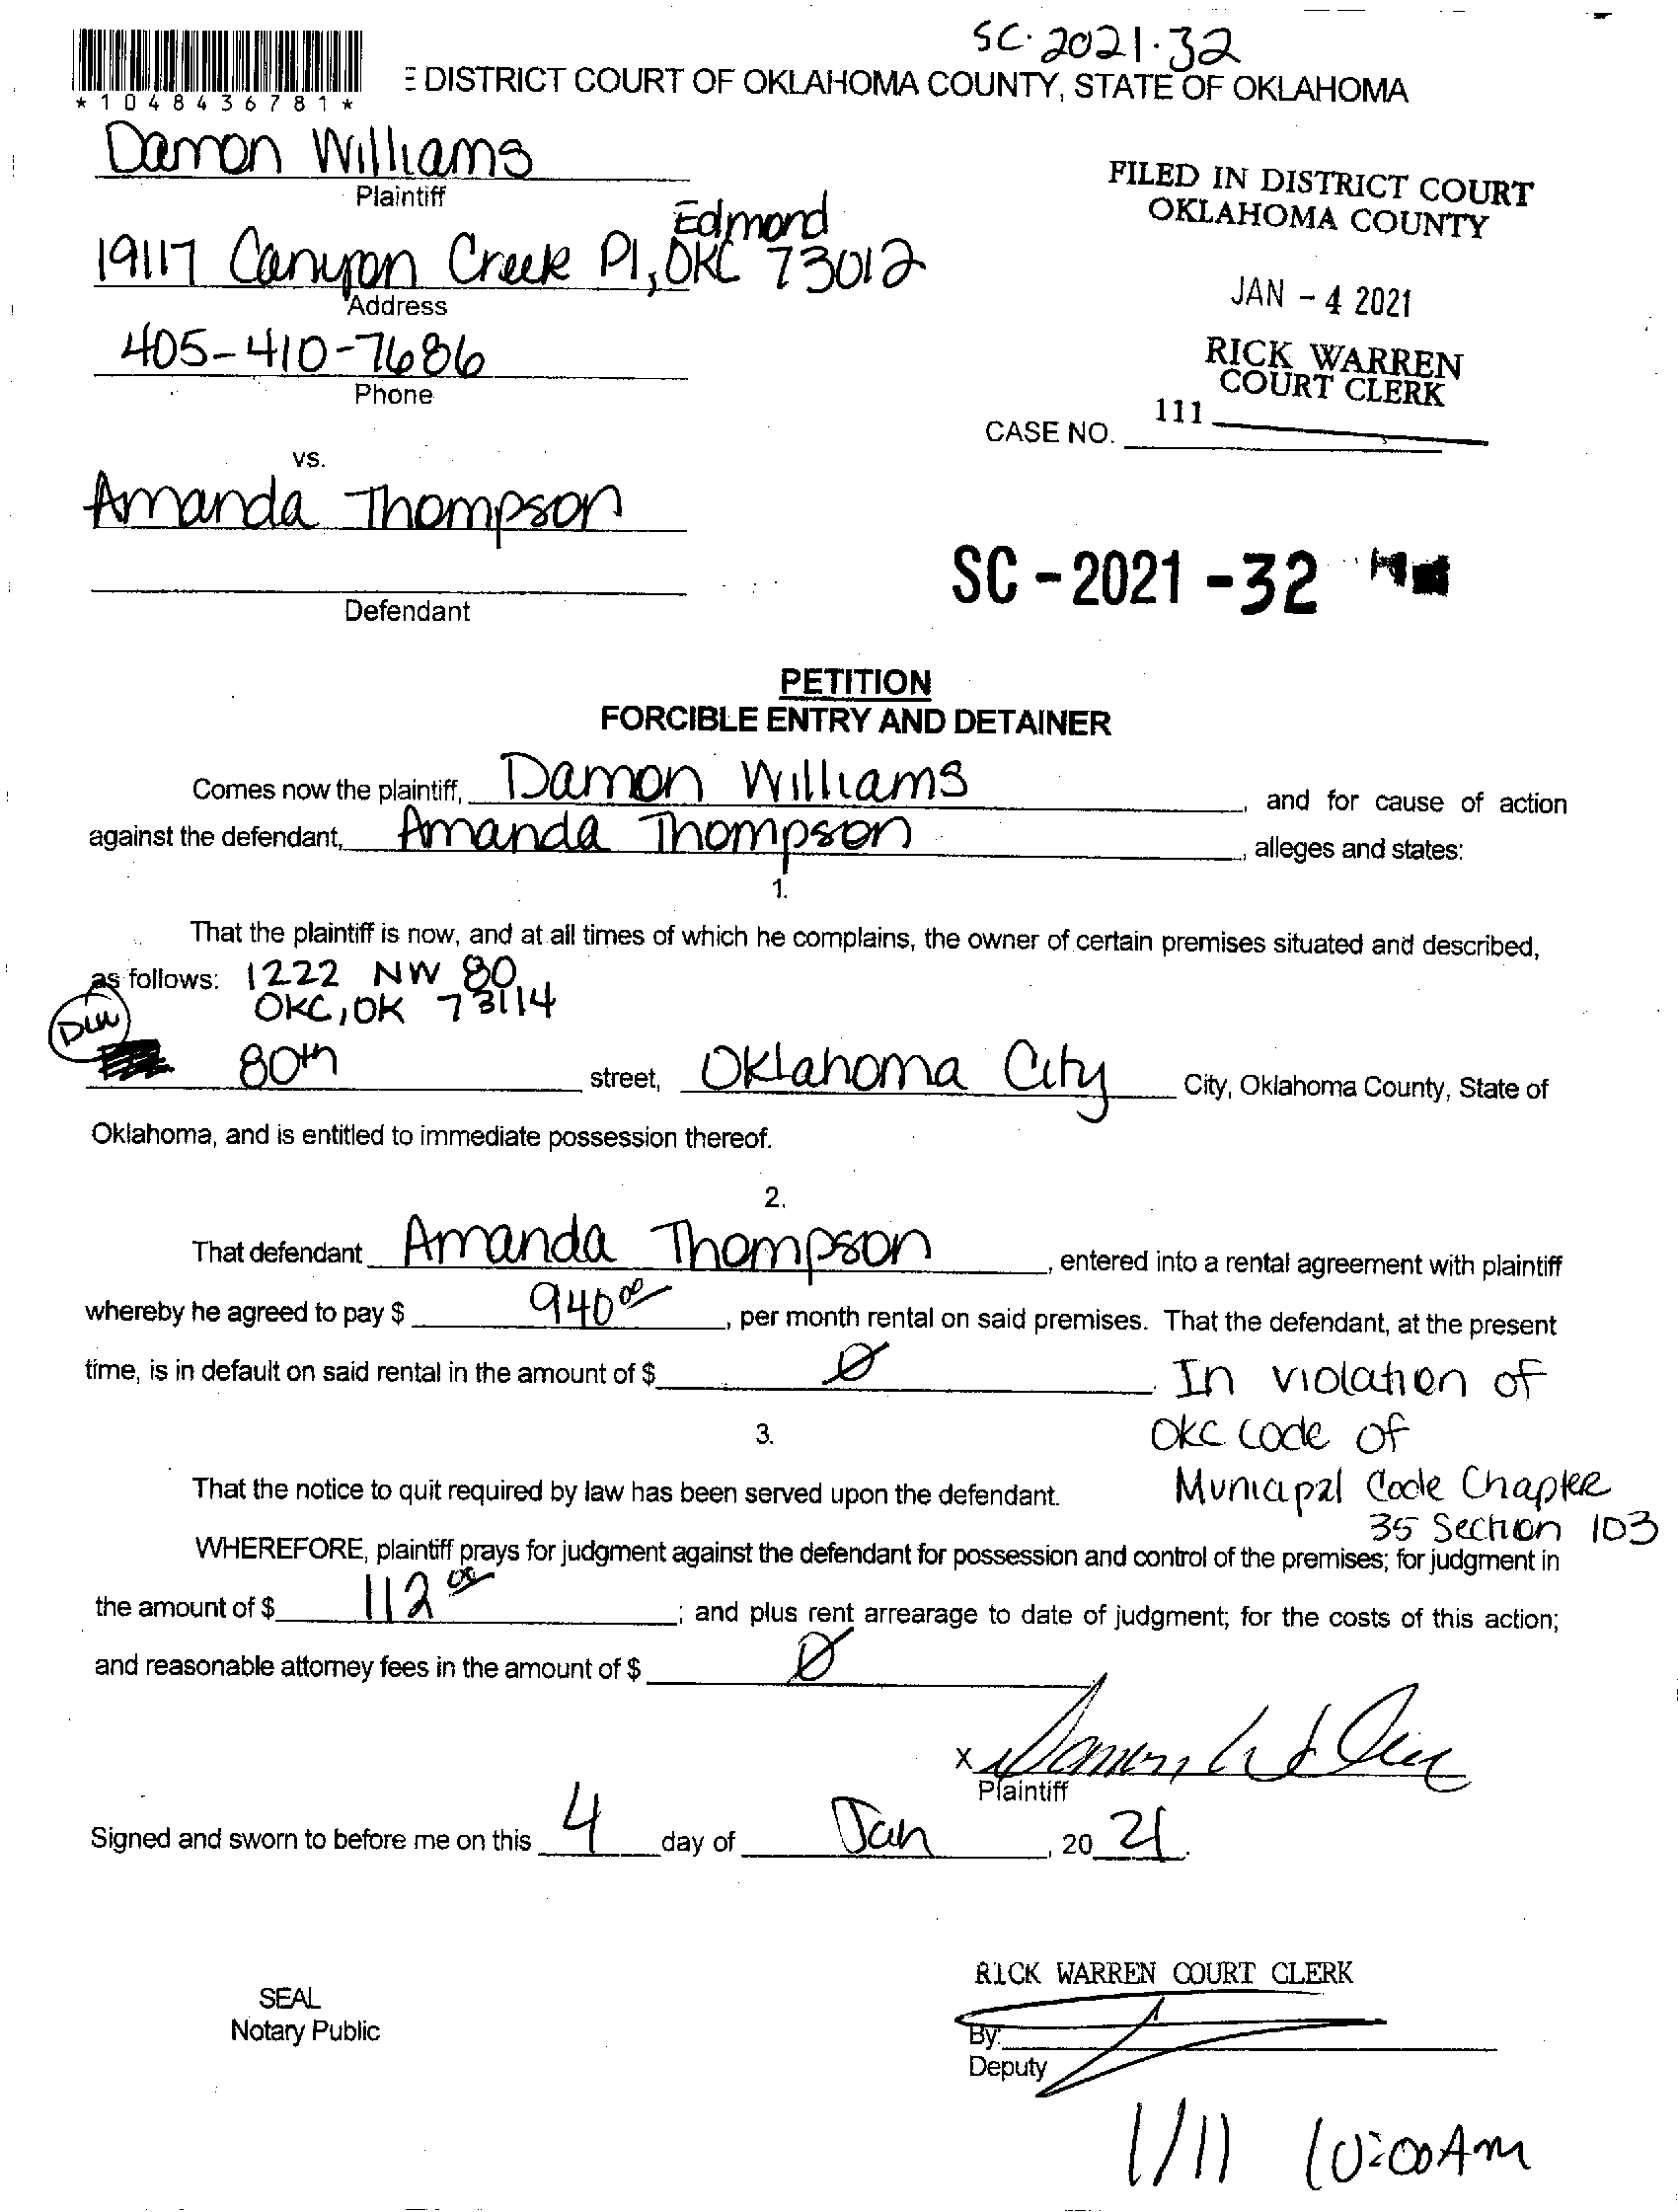 SC-2021-32
E DISTRICT COURT OF OKLAHOMA COUNTY, STATE OF OKLAHOMA
*1048436781*
Damon Williams
Plaintiff
FILED IN DISTRICT COURT
OKLAHOMA COUNTY
Edmond
19117 Canyon Creek Pl, OKC 73012
Address
JAN - 4 2021
405-410-7686
Phone
RICK WARREN
COURT CLERK
111
CASE NO.
vs.
Amanda Thompson
SC - 2021 - 32
Defendant
PETITION
FORCIBLE ENTRY AND DETAINER
Comes now the plaintiff, Damon Williams, and for cause of action
against the defendant, Amanda Thompson, alleges and states:
1.
That the plaintiff is now, and at all times of which he complains, the owner of certain premises situated and described,
as follows: 1222 NW 80
OKC, OK 73114
DLW
80th street, Oklahoma City City, Oklahoma County, State of
Oklahoma, and is entitled to immediate possession thereof.
2.
That defendant Amanda Thompson, entered into a rental agreement with plaintiff
whereby he agreed to pay $ 940.00, per month rental on said premises. That the defendant, at the present
time, is in default on said rental in the amount of $ Ø. In violation of
OKC Code of
3.
Municipal Code Chapter
35 Section 103
That the notice to quit required by law has been served upon the defendant.
WHEREFORE, plaintiff prays for judgment against the defendant for possession and control of the premises; for judgment in
the amount of $ 112.00; and plus rent arrearage to date of judgment; for the costs of this action;
and reasonable attorney fees in the amount of $ Ø
X
Plaintiff
Signed and sworn to before me on this 4 day of Jan, 20 21.
RICK WARREN COURT CLERK
SEAL
Notary Public
By:
Deputy
1/11 10:00AM